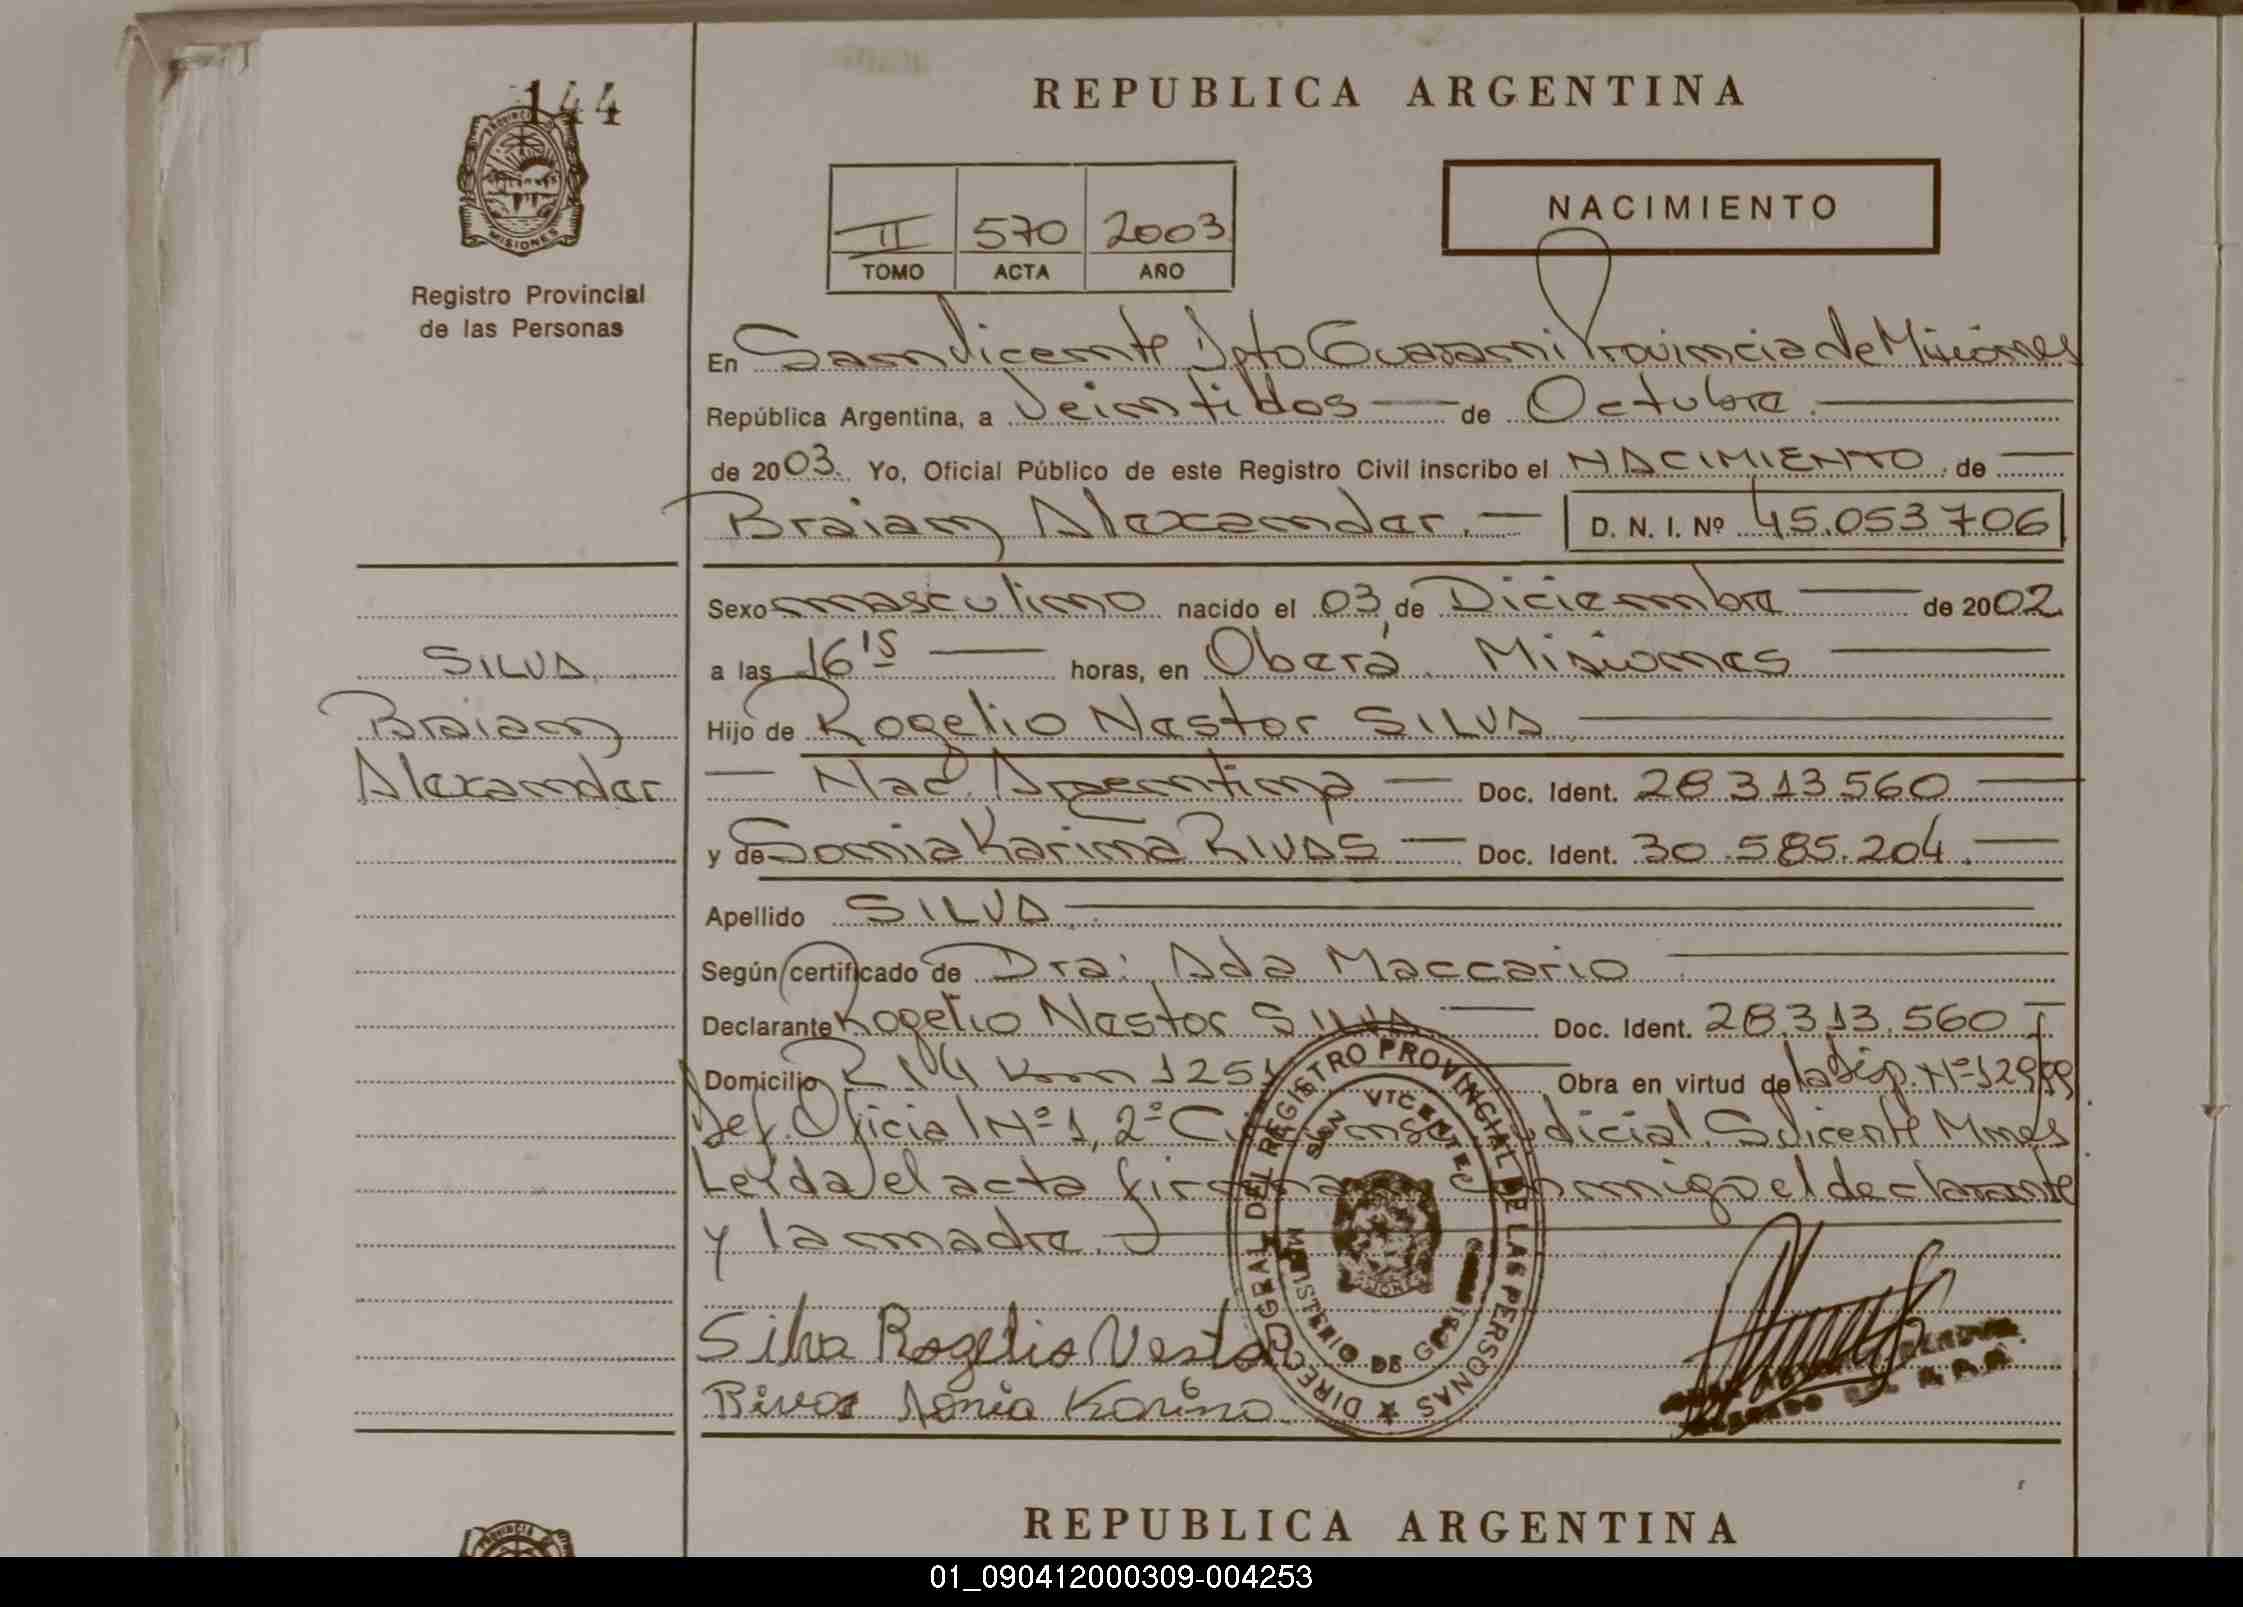 144
PROVINCIA DE
MISIONES
Registro Provincial
de las Personas
REPUBLICA ARGENTINA
II 570 2003
TOMO ACTA AÑO
NACIMIENTO
En San Vicente Dpto Guarani Provincia de Misiones
República Argentina, a Veintidos de Octubre.
de 2003. Yo, Oficial Público de este Registro Civil inscribo el NACIMIENTO de
Braian Alexander. D. N. I. Nº 45.053.706
Sexo masculino nacido el 03 de Diciembre de 2002
SILVA
a las 16 15 horas, en Oberá Misiones
Braian
Hijo de Rogelio Nestor SILVA
Alexander
Nac. Argentina Doc. Ident. 28.313.560
y de Sonia Karina RIVAS Doc. Ident. 30.585.204.
Apellido SILVA
Según certificado de Dra: Ada Maccario
Declarante Rogelio Nestor SILVA Doc. Ident. 28.313.560
Domicilio R N 14 Km 1251 Obra en virtud de la Disp. Nº
Def. Oficial Nº 1, 2º Judicial. S. Vicente Mnes
Leida el acta firma conmigo el declarante
y la madre.
DIREC. GRAL DEL REGISTRO PROVINCIAL DE LAS PERSONAS
SAN VICENTE
MINISTERIO DE
Silva Rogelio Nestor
Rivas Sonia Karina
REPUBLICA ARGENTINA
PROVINCIA
01_090412000309-004253